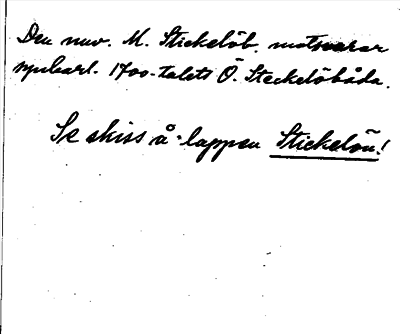 Den nuv. M. Stickelöb. motsvarar
synbarl. 1700-talets Ö. Steckelöbåda.
Se skiss å lappen Stickelön!